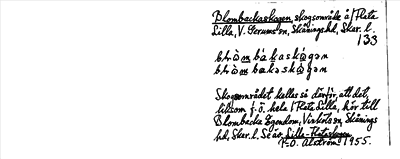 Blombackaskogen, skogsområde å/ Flata
Lilla, V. Gerums sn, Skånings hd, Skar. l.
133
Skogsområdet kallas så därför, att det,
liksom f. ö. hela Flata Lilla, hör till
Blombacka Egendom, Vinköls sn, Skånings
hd, Skar. l. Se äv. Lilla-Flataskogen.
P-O. Alström 1955.